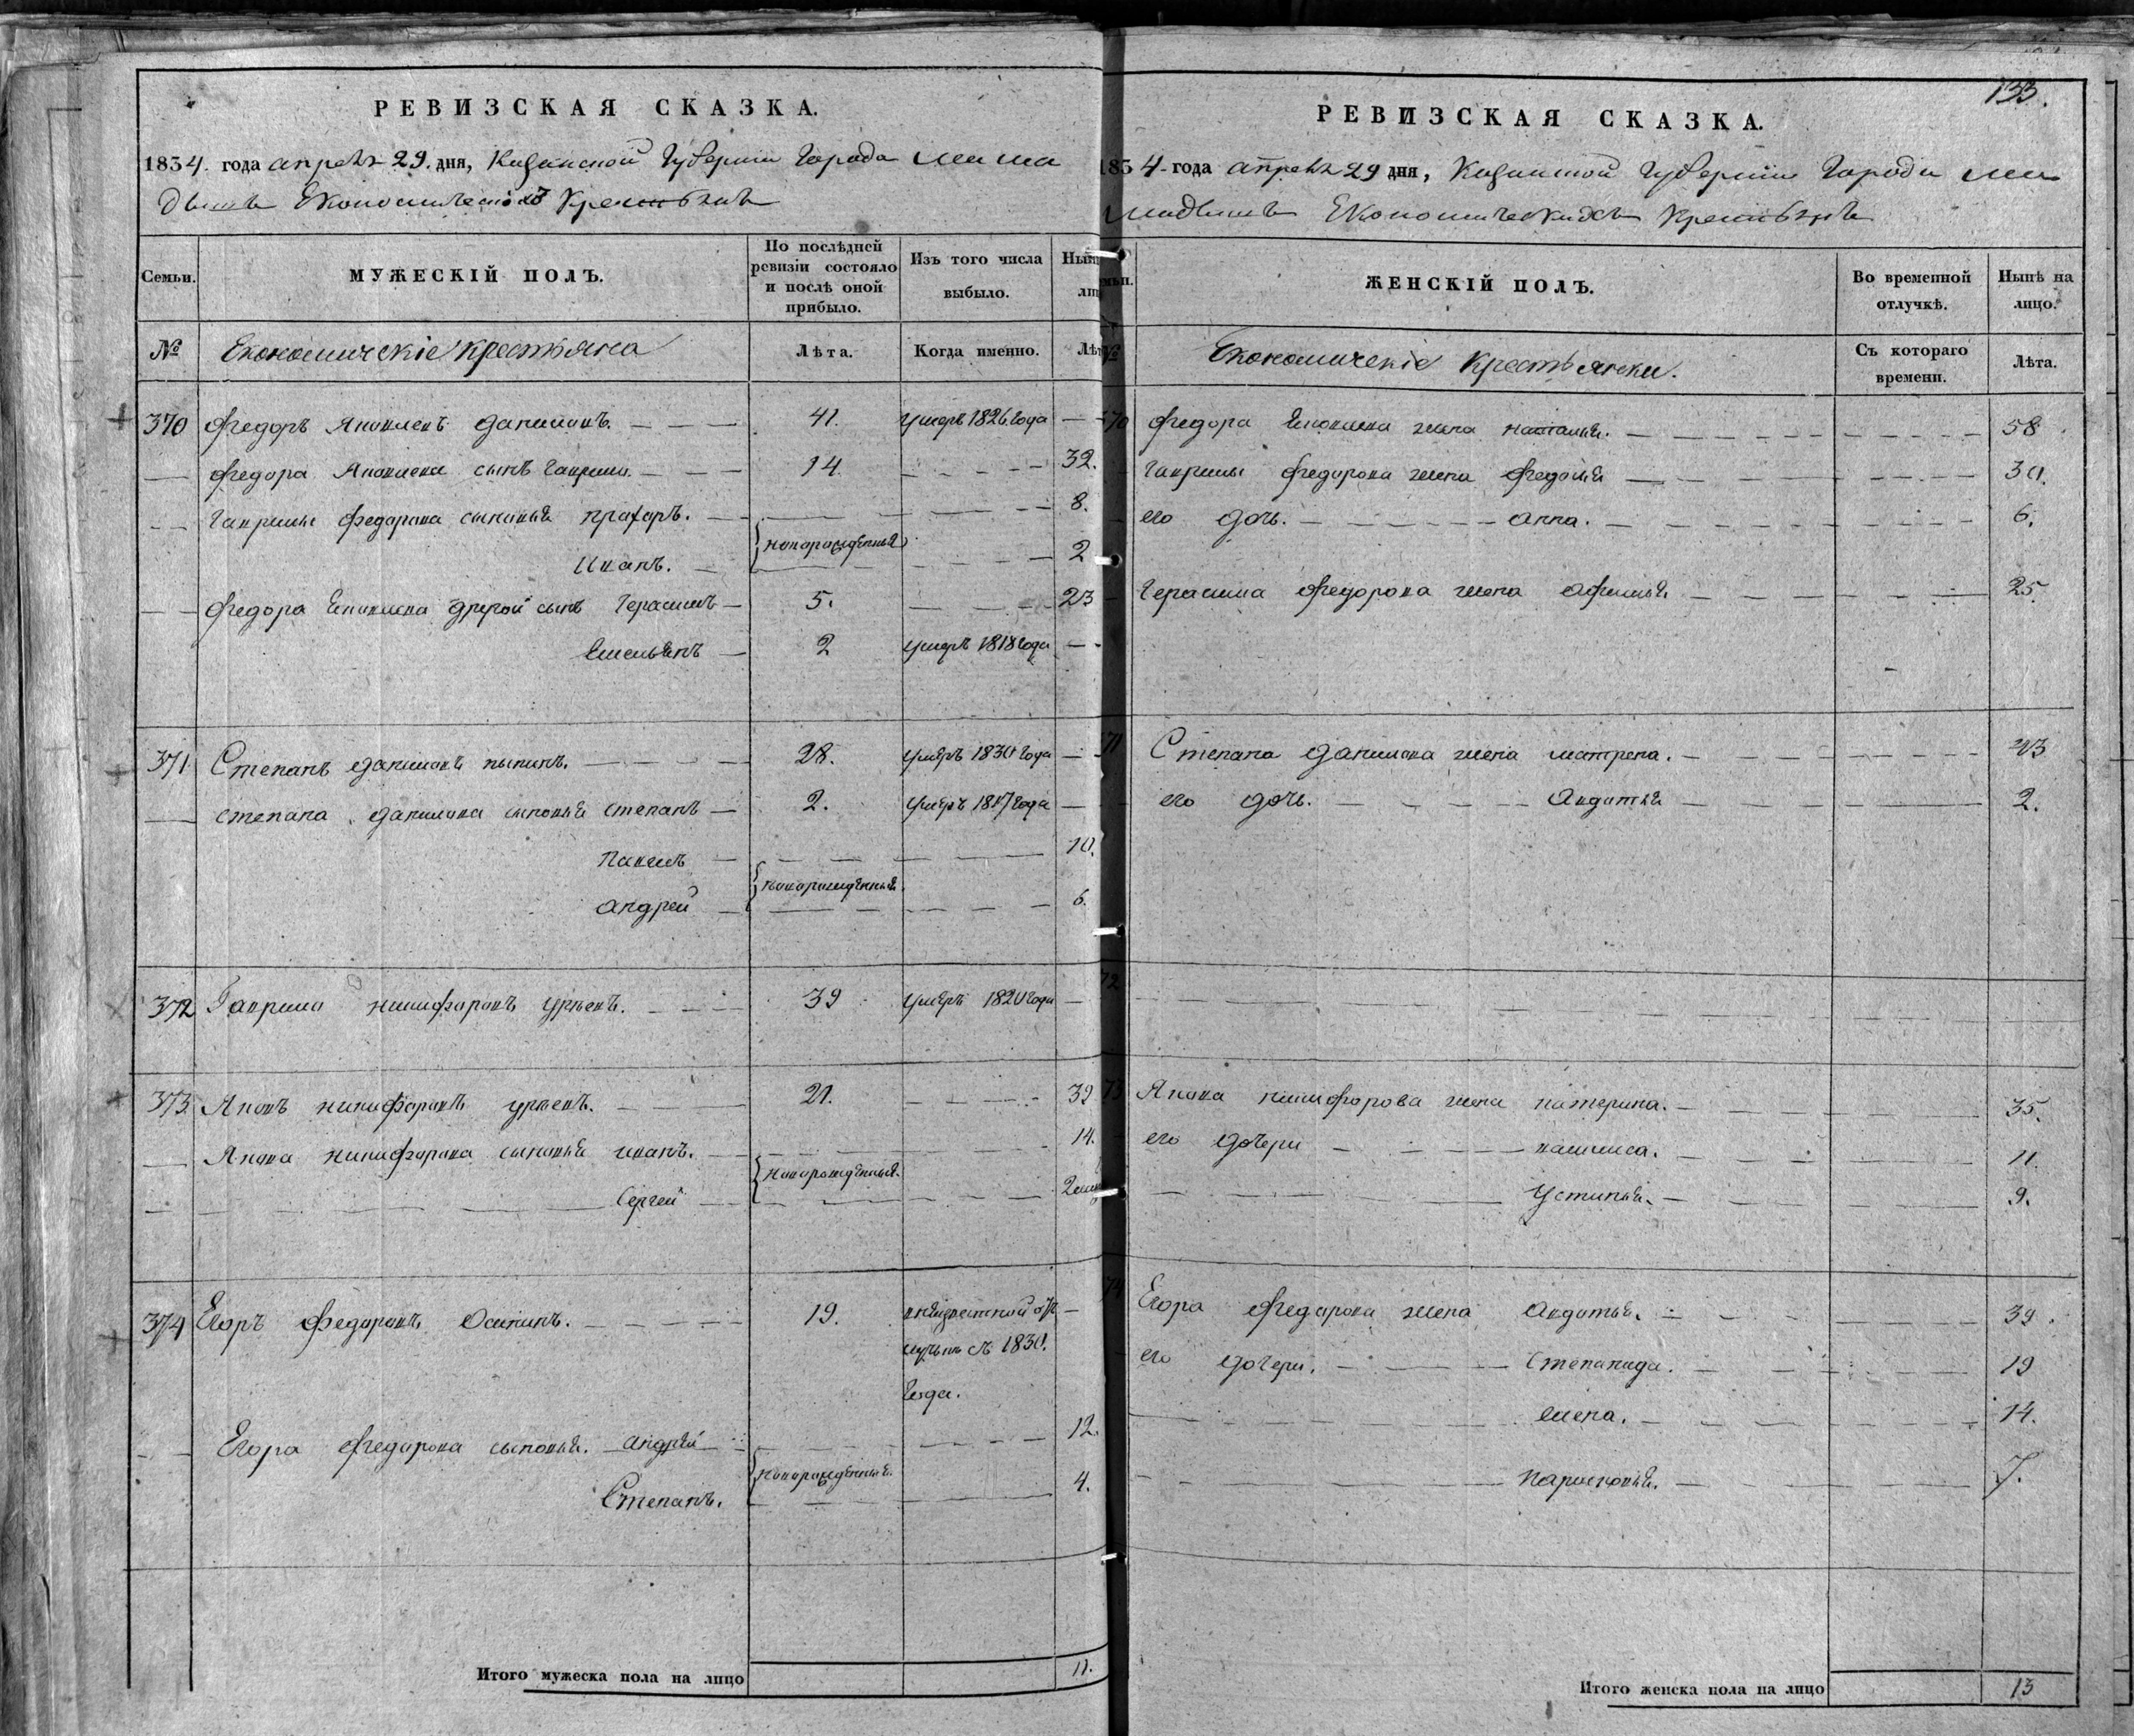 133.
РЕВИЗСКАЯ СКАЗКА.
1834. года апреля 29. дня, Казанской Губернии Города Мама
дышъ Економическихъ Крестьянъ
Семьи.
МУЖЕСКІЙ ПОЛЪ.
По послѣдней ревизіи состояло и послѣ оной прибыло.
Изъ того числа выбыло.
№
Економическіе крестьяна
Лѣта.
Когда именно.
370 Федоръ Яковлевъ Даниловъ. 41. умеръ 1826 года
Федора Яковлева сынъ Гаврила. 14. 32.
Гаврилы Федорова сыновья Прахоръ. 8.
новорожденныя
Иванъ. 2
Федора Яковлева другой сынъ Герасимъ 5. 23
Емельянъ 2 умеръ 1818 года
371 Степанъ Даниловъ 28. умеръ 1830 года
Степана Данилова сыновья Степанъ 2. умеръ 1817 года
Павелъ 10.
новорожденныя
Андрей 6.
372 Гаврила Никифоровъ 39 умеръ 1820 года
373. Яковъ Никифоровъ 21. 39
Якова Никифорова сыновья Иванъ. 14.
новорожденныя.
Сергей 2
374 Егоръ Федоровъ Осипинъ. 19.
съ 1830.
года.
Егора Федорова сыновья. Андрей 12.
новорожденныя.
Степанъ. 4.
Итого мужеска пола на лицо 11.
РЕВИЗСКАЯ СКАЗКА.
1834. года апреля 29 дня, Казанской Губернии Города Ма
мадышъ Економическихъ Крестьянъ
ЖЕНСКІЙ ПОЛЪ.
Во временной отлучкѣ.
Нынѣ на лицо.
Економическіе Крестьянки.
Съ котораго времени.
Лѣта.
Федора Яковлева жена Наталья. 58
Гаврилы Федорова жена Федосья 30.
его дочь. Анна. 6.
Герасима Федорова жена Афимья 25.
Степана Данилова жена Матрена. 43
его дочь. Авдотья 2.
Якова Никифорова жена Катерина. 35.
его дочери 11.
Устинья. 9.
Егора Федорова жена Авдотья. 39.
его дочери. Степанида. 19
Елена. 14.
Парасковья. 7.
Итого женска пола на лицо 13